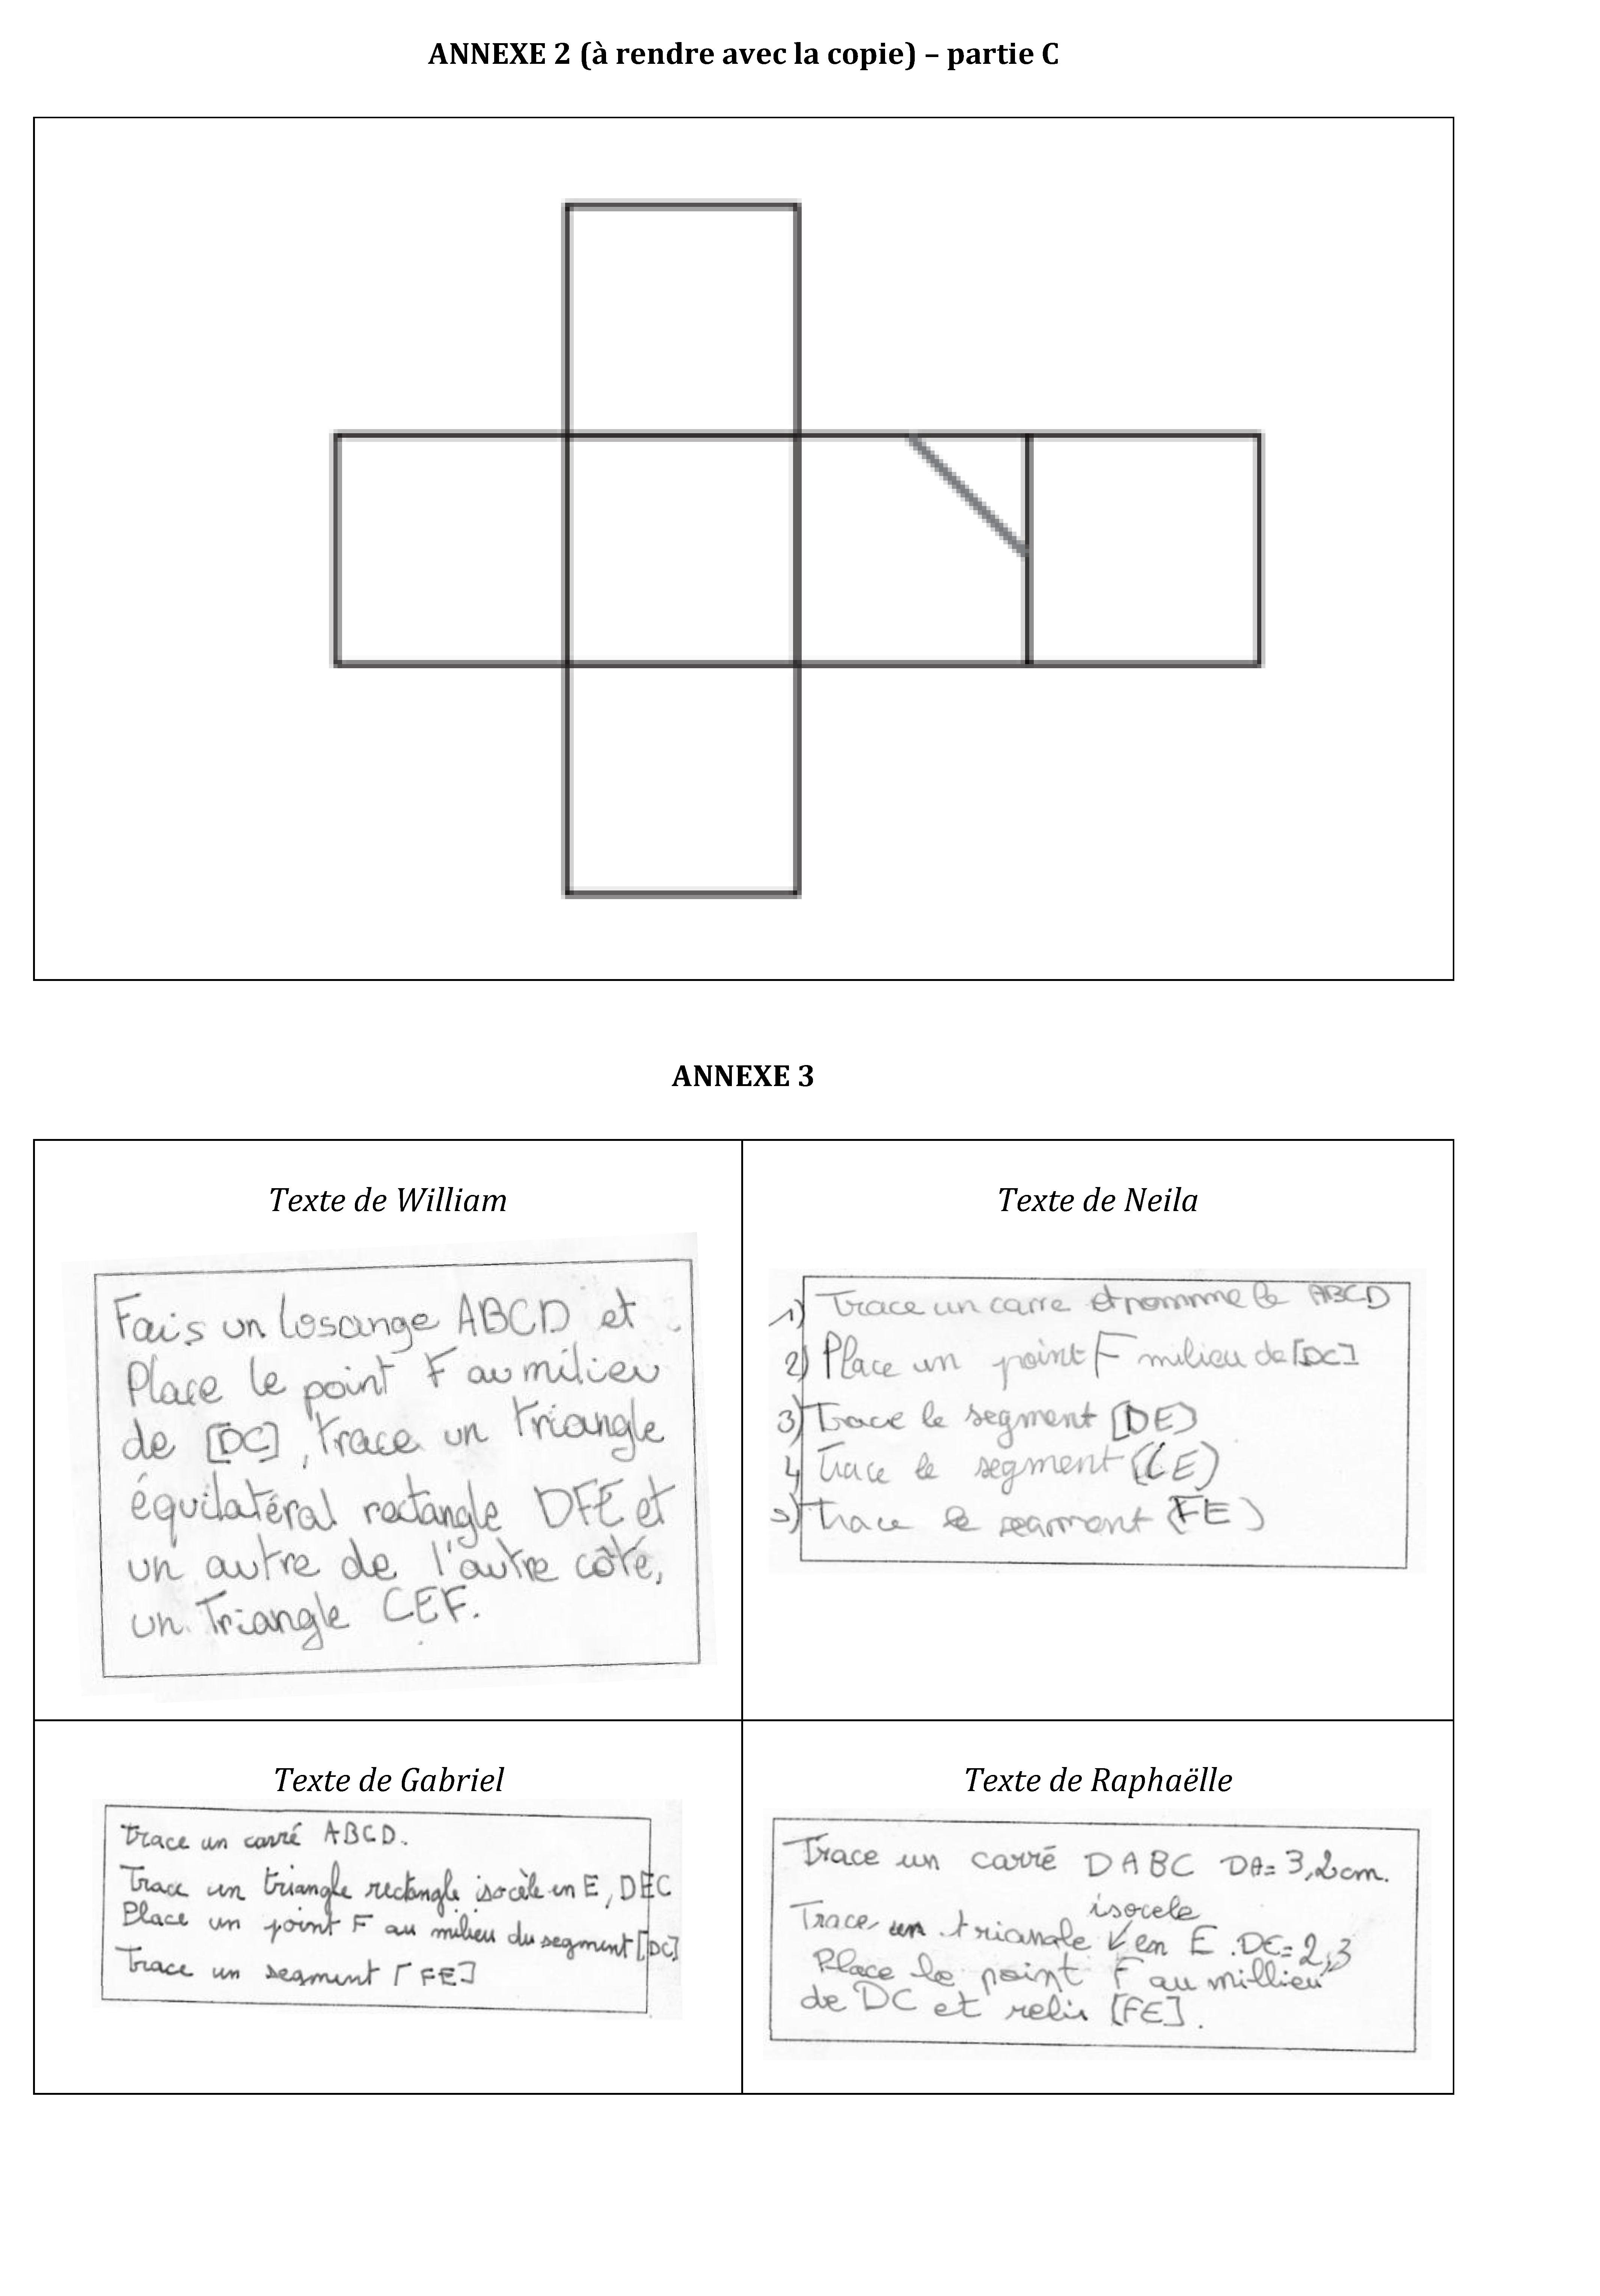 ANNEXE 2 (à rendre avec la copie) – partie C
ANNEXE 3
Texte de William
Fais un losange ABCD et
Place le point F au milieu
de [DC], trace un triangle
équilatéral rectangle DFE et
un autre de l'autre côté,
un Triangle CEF.
Texte de Neila
1) Trace un carre et nomme le ABCD
2) Place un point F milieu de [DC]
3) Trace le segment [DE)
4 Trace le segment (CE)
5) Trace le segment (FE)
Texte de Gabriel
Trace un carré ABCD.
Trace un triangle rectangle isocèle en E, DEC
Place un point F au milieu du segment [DC]
Trace un segment [FE]
Texte de Raphaëlle
Trace un carré DABC DA= 3,2cm.
isocele
Trace un triangle en E. DC= 2,3
Place le point F au millieu
de DC et relis [FE].